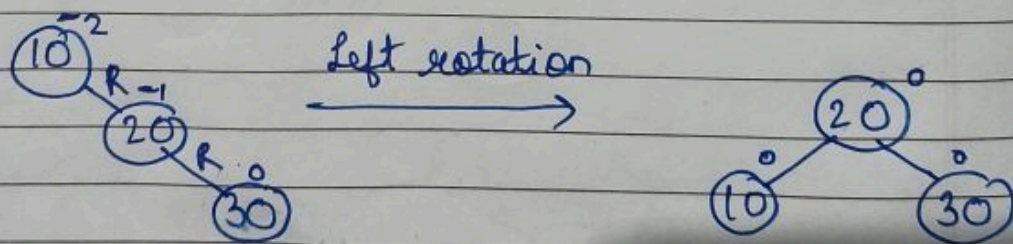 10 -2
R -1
20
R 0
30
Left rotation
20 0
0 0
10 30